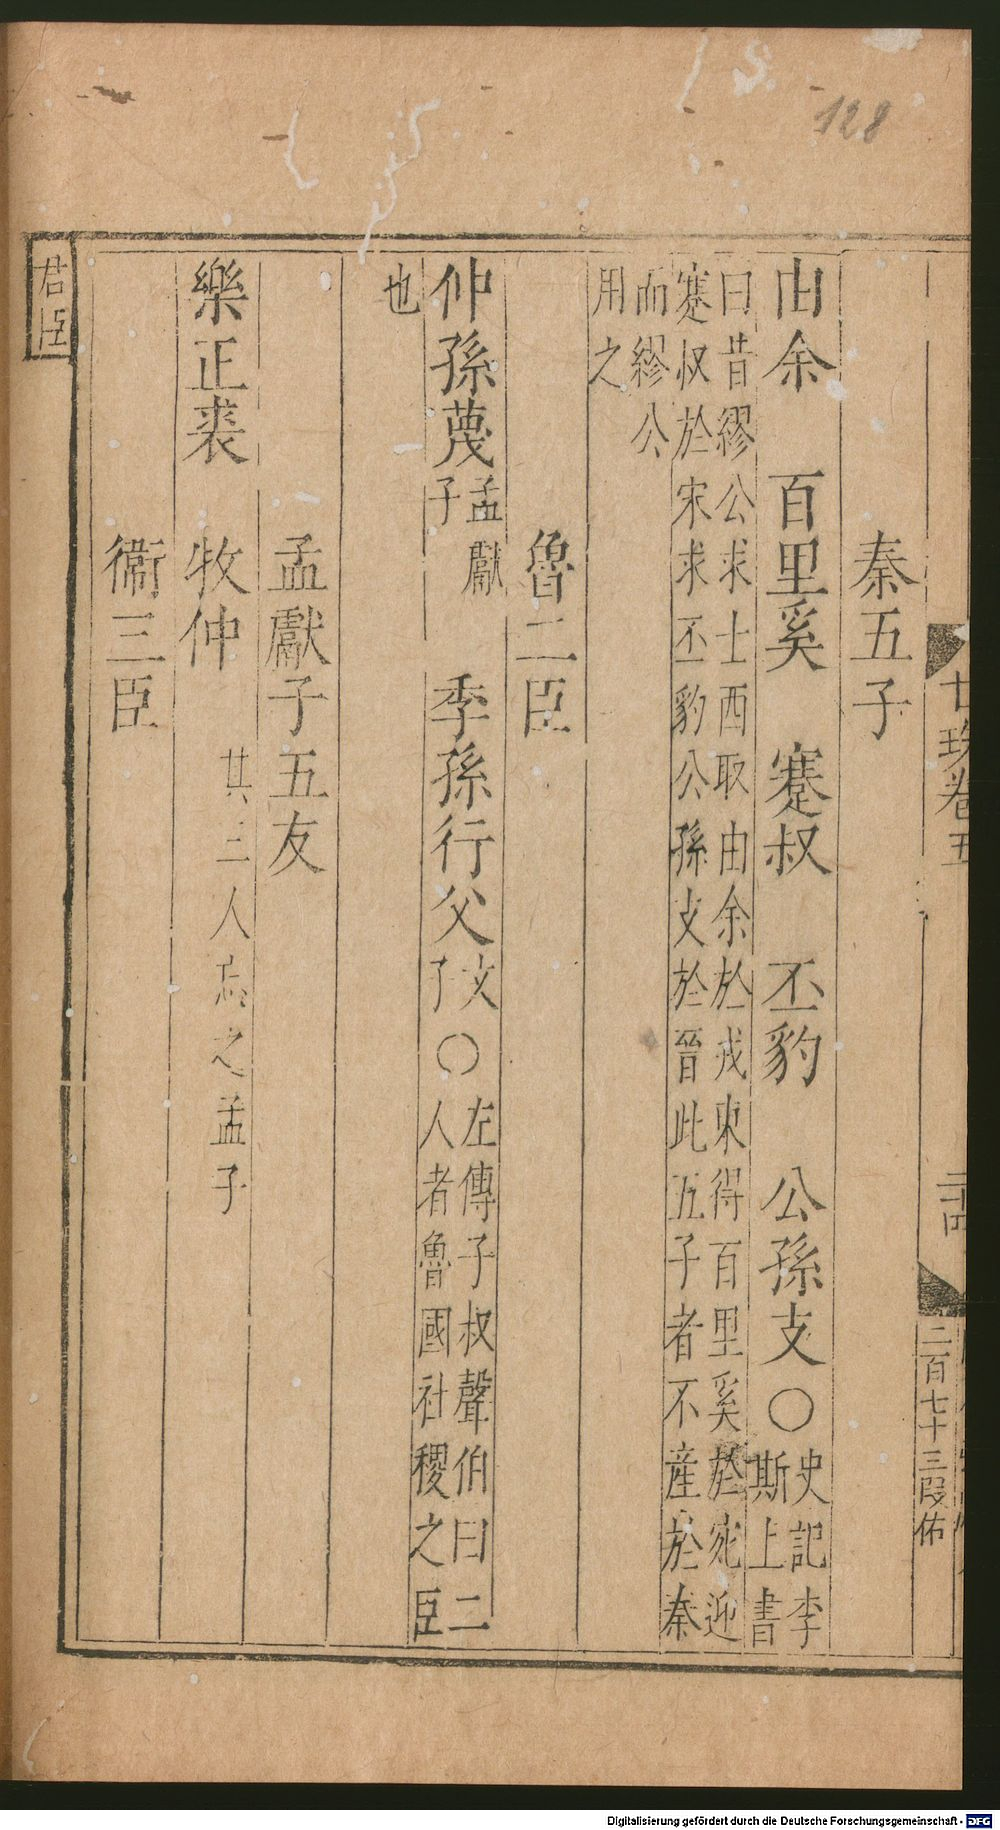 128
秦五子
由余 百里奚 蹇叔 丕豹 公孫支〇史記李
斯上書
曰昔繆公求士西取由余於戎東得百里奚於宛迎
蹇叔於宋求丕豹公孫支於晉此五子者不産於秦
而繆公
用之
魯二臣
仲孫蔑孟獻
子 季孫行父文
子〇左傳子叔聲伯曰二
人者魯國社稷之臣
也
孟獻子五友
樂正裘 牧仲 其三人忘之孟子
衞三臣
君臣
廿珠卷五
二百七十三段佑
Digitalisierung gefördert durch die Deutsche Forschungsgemeinschaft - DFG